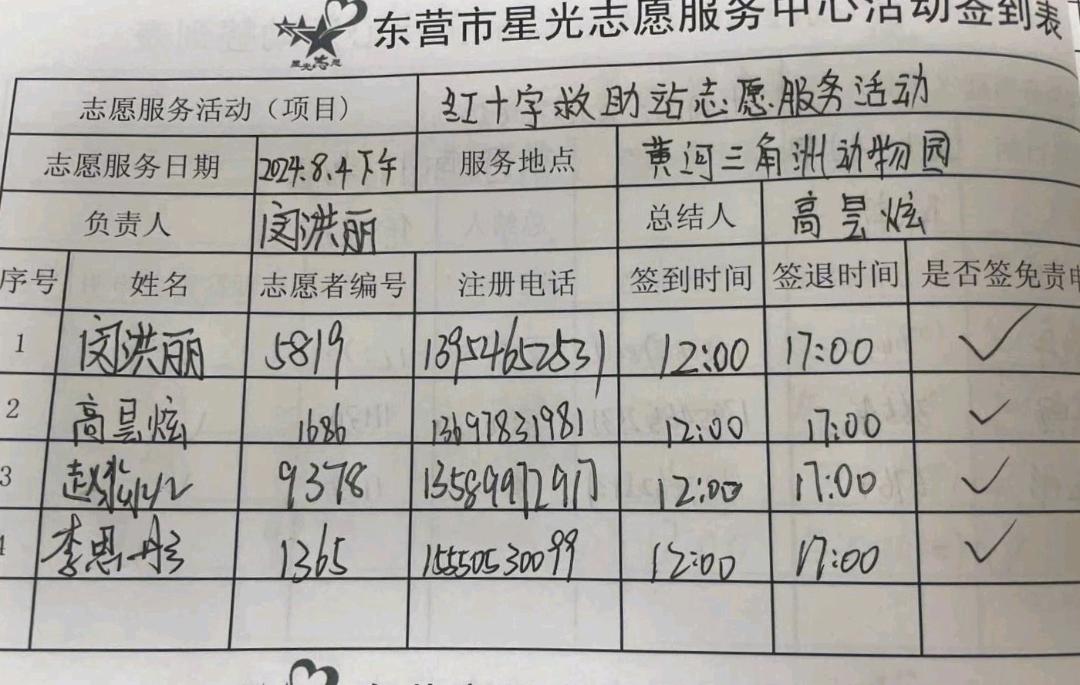 东营市星光志愿服务中心活动签到表
星光志愿
志愿服务活动（项目） 红十字救助站志愿服务活动
志愿服务日期 2024.8.4下午 服务地点 黄河三角洲动物园
负责人 闵洪丽 总结人 高昙炫
序号 姓名 志愿者编号 注册电话 签到时间 签退时间 是否签免责
1 闵洪丽 5819 13954652531 12:00 17:00 ✓
2 高昙炫 1686 13697831981 12:00 17:00 ✓
3 赵 9378 13589972917 12:00 17:00 ✓
4 李思彤 1365 15550530099 12:00 17:00 ✓